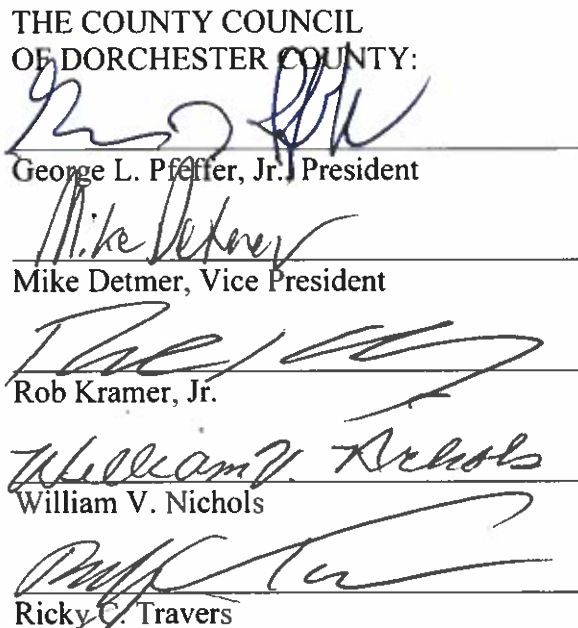 THE COUNTY COUNCIL
OF DORCHESTER COUNTY:
George L. Pfeffer, Jr., President
Mike Detmer
Mike Detmer, Vice President
Rob Kramer, Jr.
William V. Nichols
William V. Nichols
Ricky C. Travers